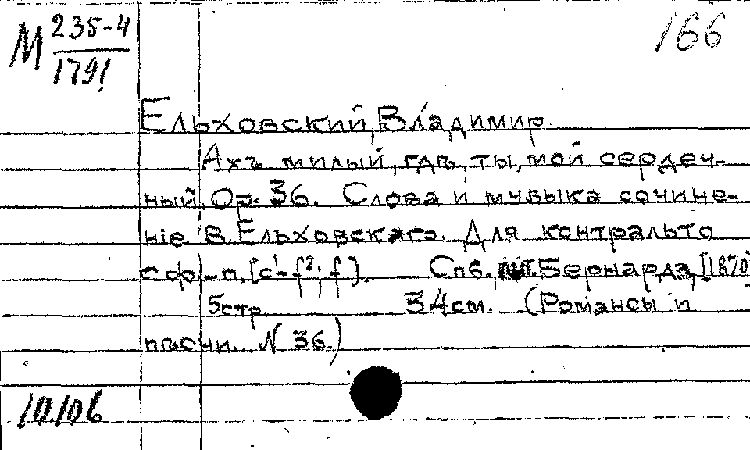 М 235-4
1791
166
Ельховский, Владимир.
Ахъ милый, гдѣ ты, мой сердеч-
ный. Ор. 36. Слова и музыка сочине-
ніе В. Ельховскаго. Для контральто
с фр-п. [c¹-f²; f]. Спб. М. Бернарда, [1870]
5 стр. 34 см. (Романсы и
пѣсни. N 36.)
10.106